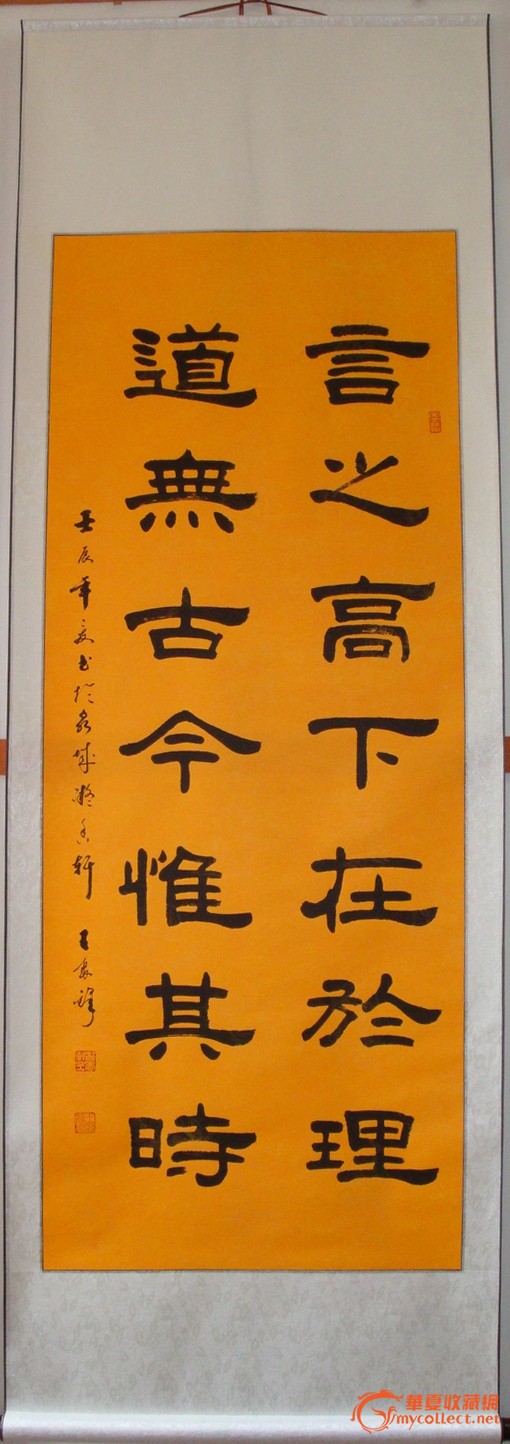 言之高下在於理
道無古今惟其時
壬辰年夏書於泉城凝香軒
華夏收藏網
mycollect.net